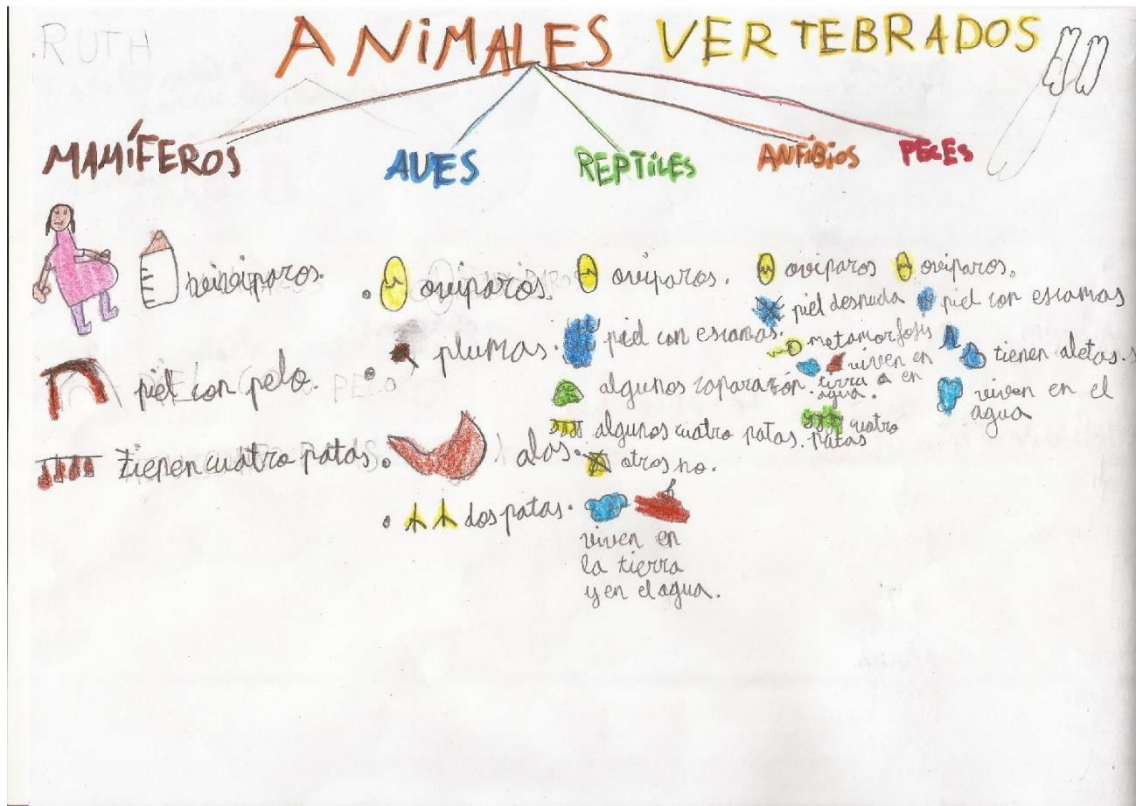 RUTH
ANIMALES VERTEBRADOS
MAMÍFEROS
AVES
REPTILES
ANFIBIOS
PECES
piel con pelo.
tienen cuatro patas.
oviparos.
plumas.
alas.
dos patas.
oviparos.
piel con escamas.
algunos caparazon.
algunos cuatro patas.
otros no.
viven en
la tierra
y en el agua.
oviparos
piel desnuda
metamorfosis
viven en
tierra o en
agua.
cuatro
patas
oviparos.
piel con escamas
tienen aletas.
viven en el
agua